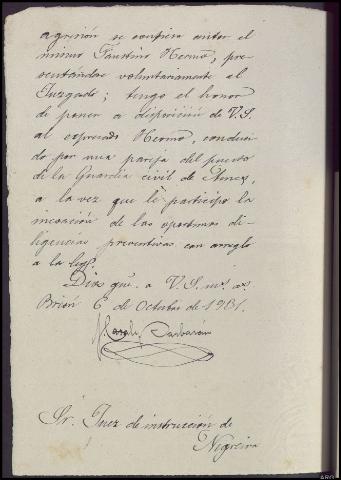 agresión se confiesa autor el
mismo Faustino Hermo, pre-
sentándose voluntariamente al
Juzgado; tengo el honor
de poner a disposición de V.S.
al expresado Hermo, conduci-
do por una pareja del puesto
de la Guardia civil de
a la vez que le participo la
incoación de las oportunas di-
ligencias preventivas con arreglo
a la ley.
Dios gue. a V.S. ms. as.
Brión 6 de Octubre de 1901.
Sr. Juez de instrucción de
Negreira